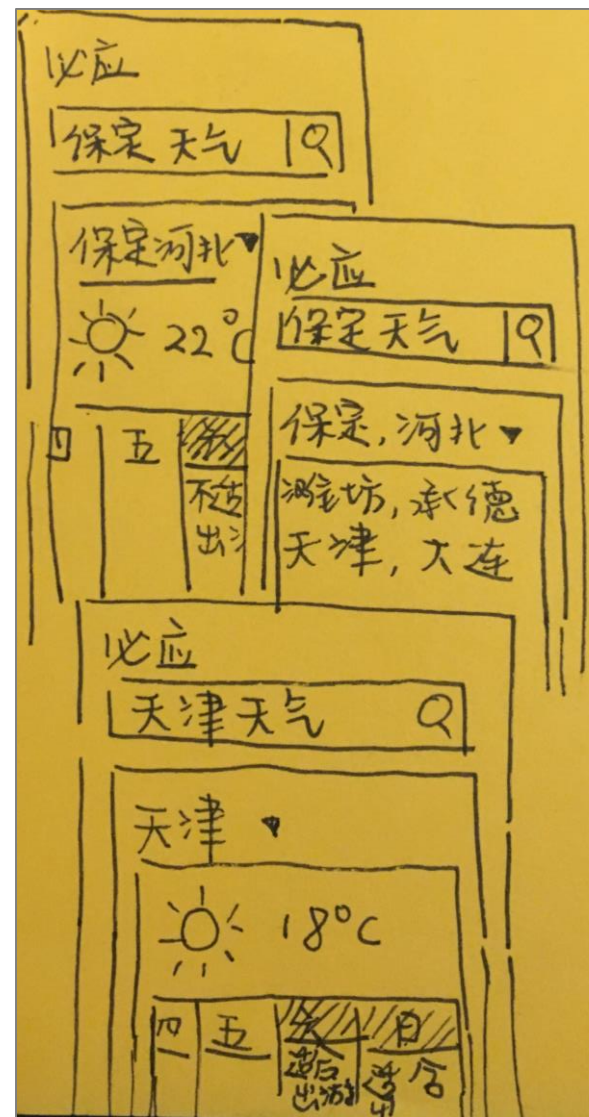 必应
保定天气
保定河北
22°C
四 五
不适
出
必应
保定天气
保定,河北
潍坊,承德
天津,大连
必应
天津天气
天津
18°C
四 五 六 日
适合
出游